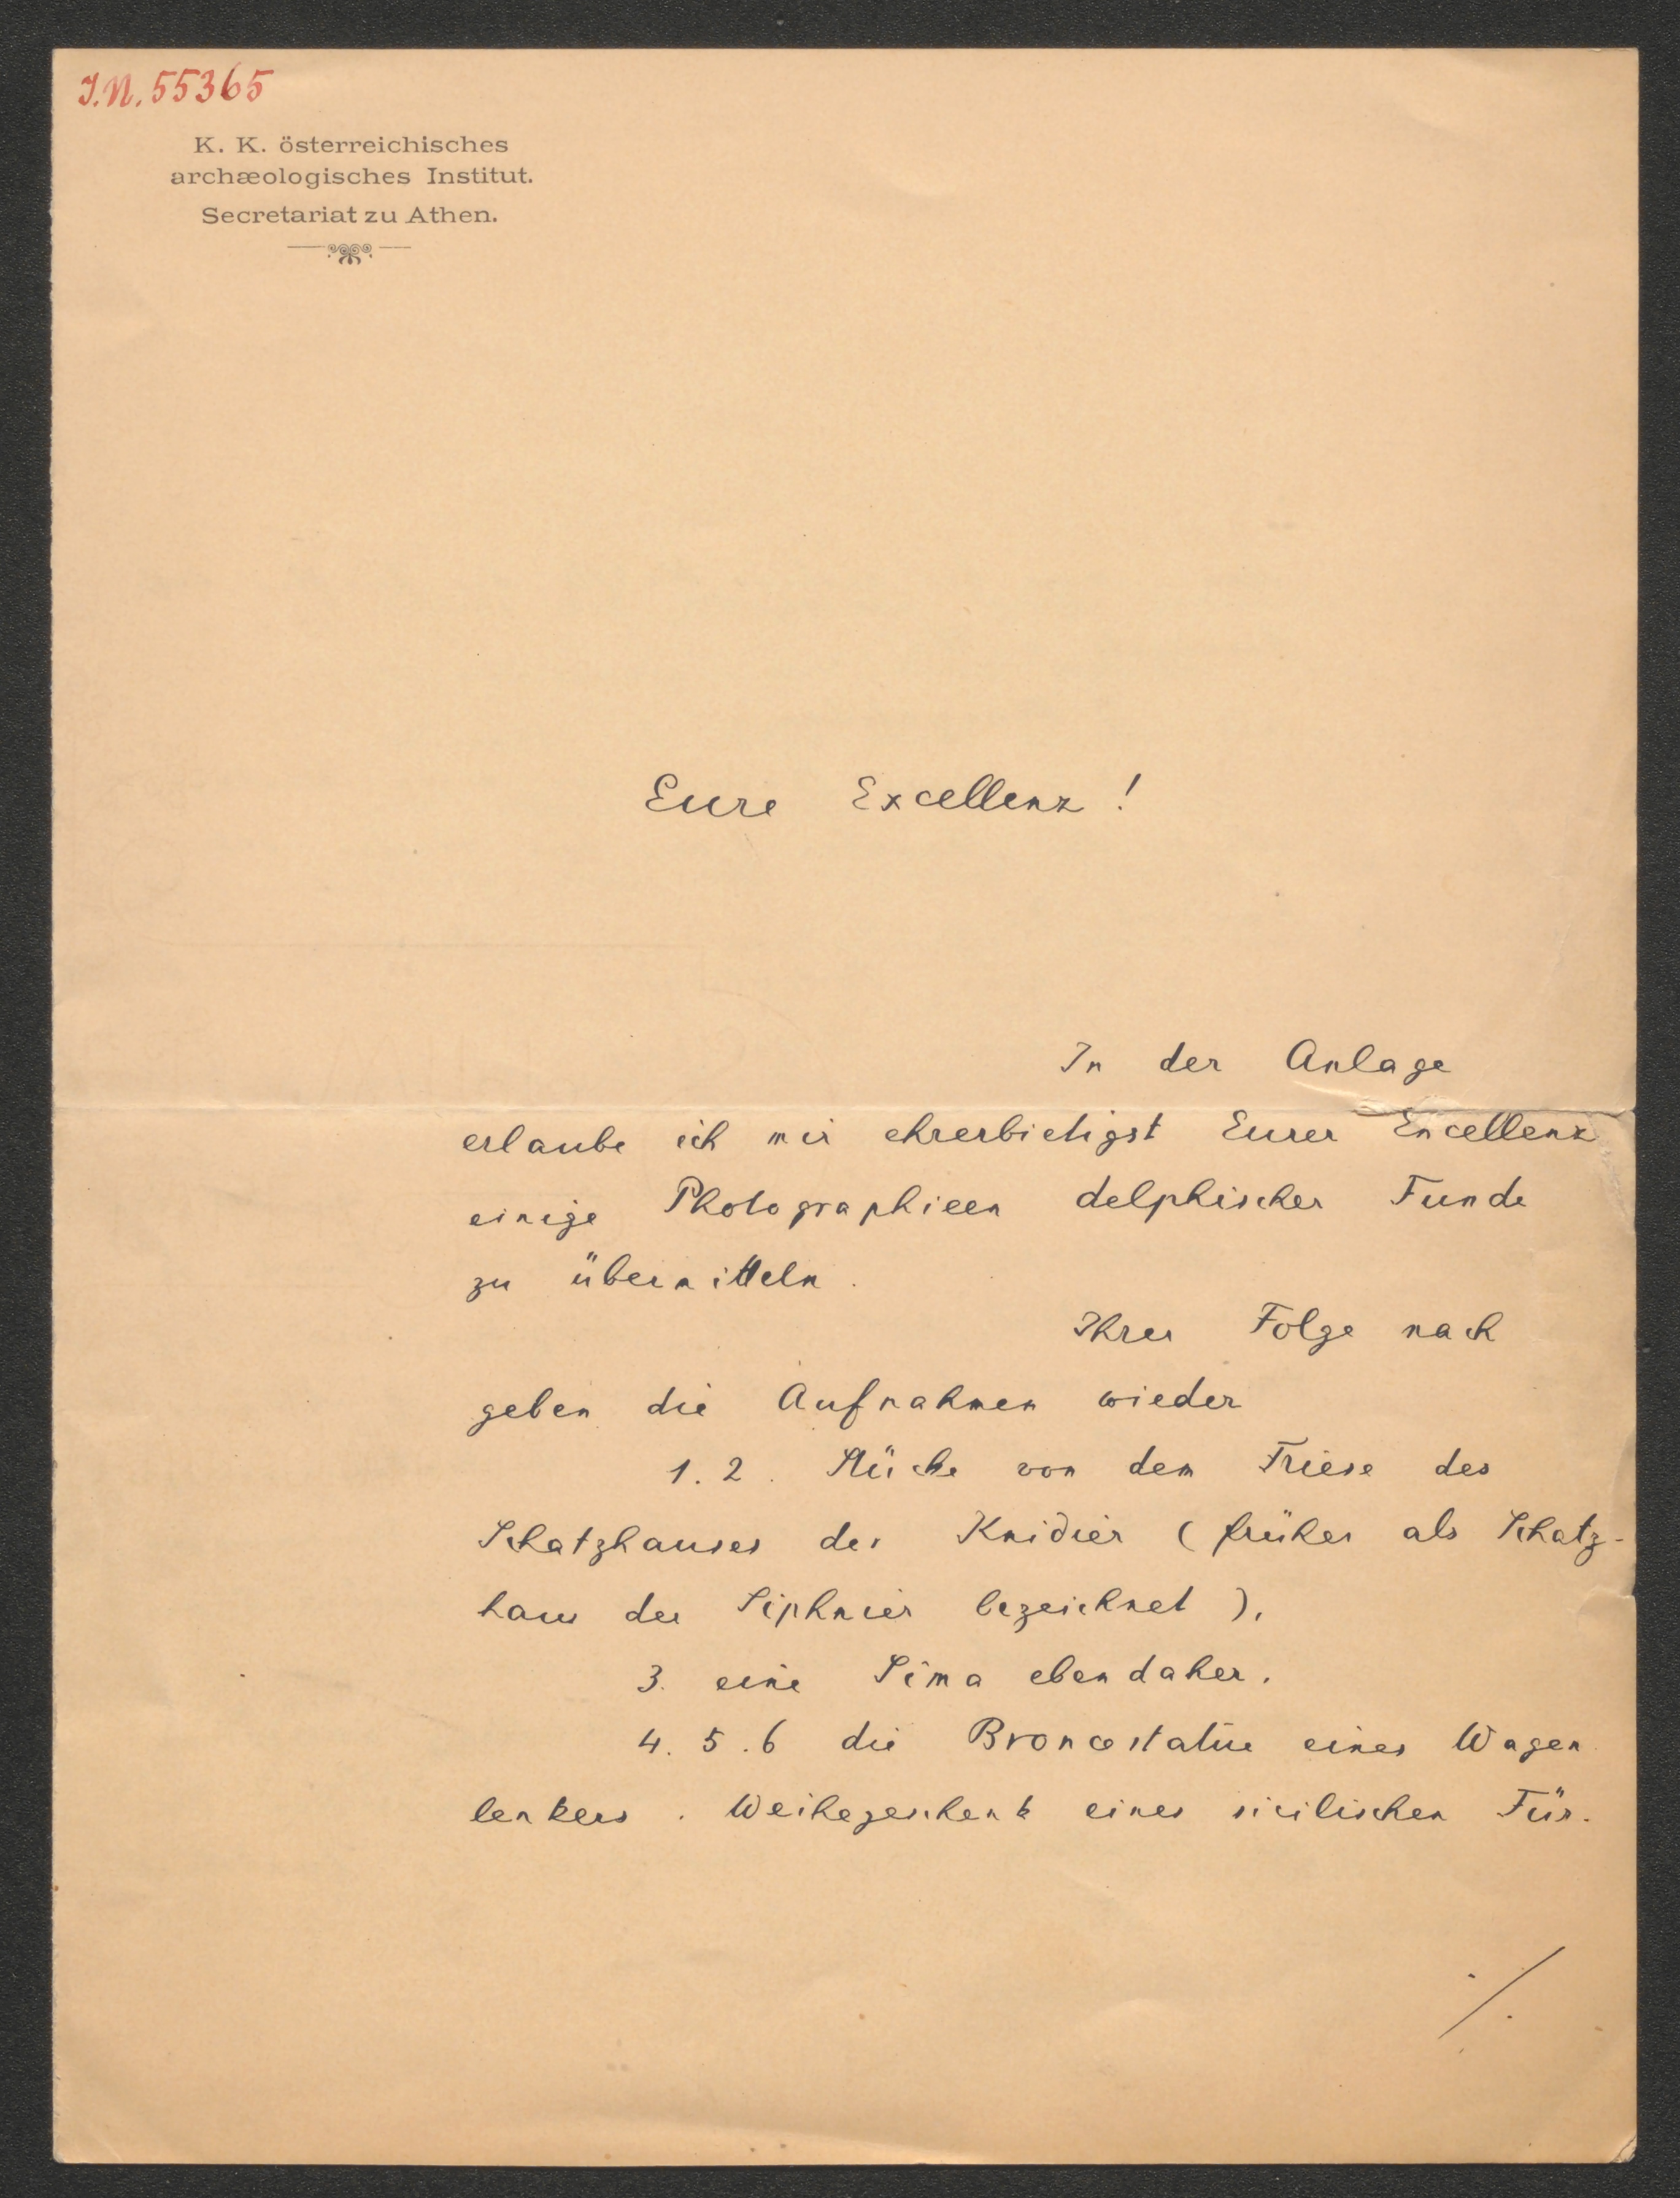 J.N. 55365
K. K. österreichisches
archæologisches Institut.
Secretariat zu Athen.
Eure Excellenz!
In der Anlage
erlaube ich mir ehrerbietigst Eurer Excellenz
einige Photographieen delphischer Funde
zu übermitteln.
Ihrer Folge nach
geben die Aufnahmen wieder
1. 2. Stücke von dem Friese des
Schatzhauses der Knidier (früher als Schatz-
haus der Siphnier bezeichnet),
3. eine Sima ebendaher.
4. 5. 6 die Broncestatue eines Wagen
lenkers. Weihegeschenk eines sicilischen Für-
./.